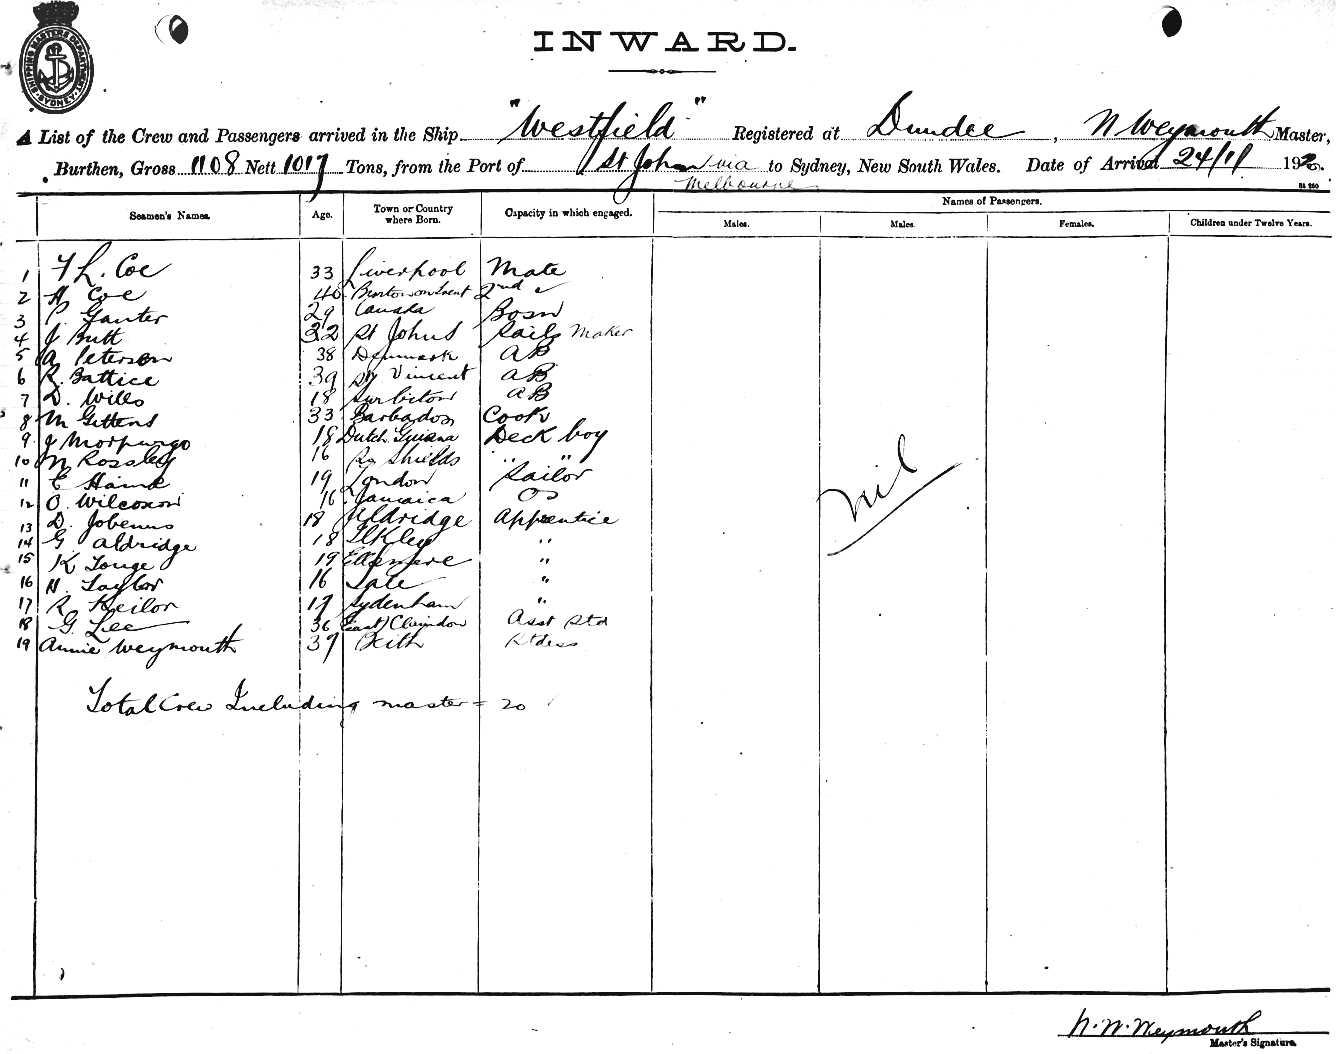 SHIPPING MASTERS DEPARTMENT SYDNEY
INWARD.
A List of the Crew and Passengers arrived in the Ship "Westfield" Registered at Dundee, N Weymouth Master,
Burthen, Gross 1108 Nett 1017 Tons, from the Port of St John via Melbourne to Sydney, New South Wales. Date of Arrival 24/11 192
Names of Passengers.
Seamen's Names. Age. Town or Country where Born. Capacity in which engaged. Males. Males. Females. Children under Twelve Years.
1 Coe 33 Liverpool Mate
2 H Coe 40 Burton on Trent 2nd "
3 P. Ganter 29 Canada Bosn
4 J Butt 32 St Johns Sails Maker
5 A Peterson 38 Denmark AB
6 R. Battice 39 St Vincent AB
7 D. Wills 18 Surbiton AB
8 M Gittens 33 Barbados Cook
9 J Morpurgo 18 Dutch Guiana Deck boy
10 M Rossley 16 Shields " "
11 E 19 London Sailor
12 O. Wilcoxon 16 Jamaica OS
13 D. 18 Apprentice
14 G aldridge 18 Ilkley "
15 K Tonge 19 Ellesmere "
16 H. Taylor 16 "
17 R Keilor 17 Sydenham "
18 G. Lee 36 East Asst Std
19 Annie Weymouth 37 Stdess
Nil
Total Crew Including master = 20
N. W. Weymouth
Master's Signature.